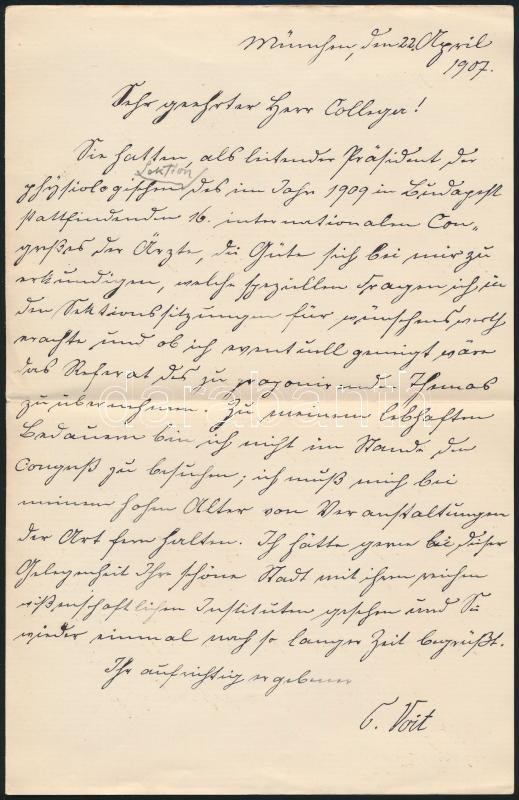 München, den 22. April
1907.
Sehr geehrter Herr Collega!
Sie hatten, als leitender Präsident der
Sektion
physiologischen des im Jahr 1909 in Budapest
stattfindenden 16. internationalen Con-
greßes der Ärzte, die Güte sich bei mir zu
erkundigen, welche speziellen Fragen ich in
den Sektionssitzungen für wünschenswerth
erachte und ob ich eventuell geneigt wäre
das Referat des zu proponirenden Themas
zu übernehmen. Zu meinem lebhaften
Bedauern bin ich nicht im Stande den
Congreß zu besuchen; ich muß mich bei
meinem hohen Alter von Veranstaltungen
der Art fern halten. Ich hätte gerne bei dieser
Gelegenheit Ihre schöne Stadt mit ihren reichen
wißenschaftlichen Instituten gesehen und Sie
wieder einmal nach so langer Zeit begrüßt.
Ihr aufrichtig ergebener
C. Voit
darabanth